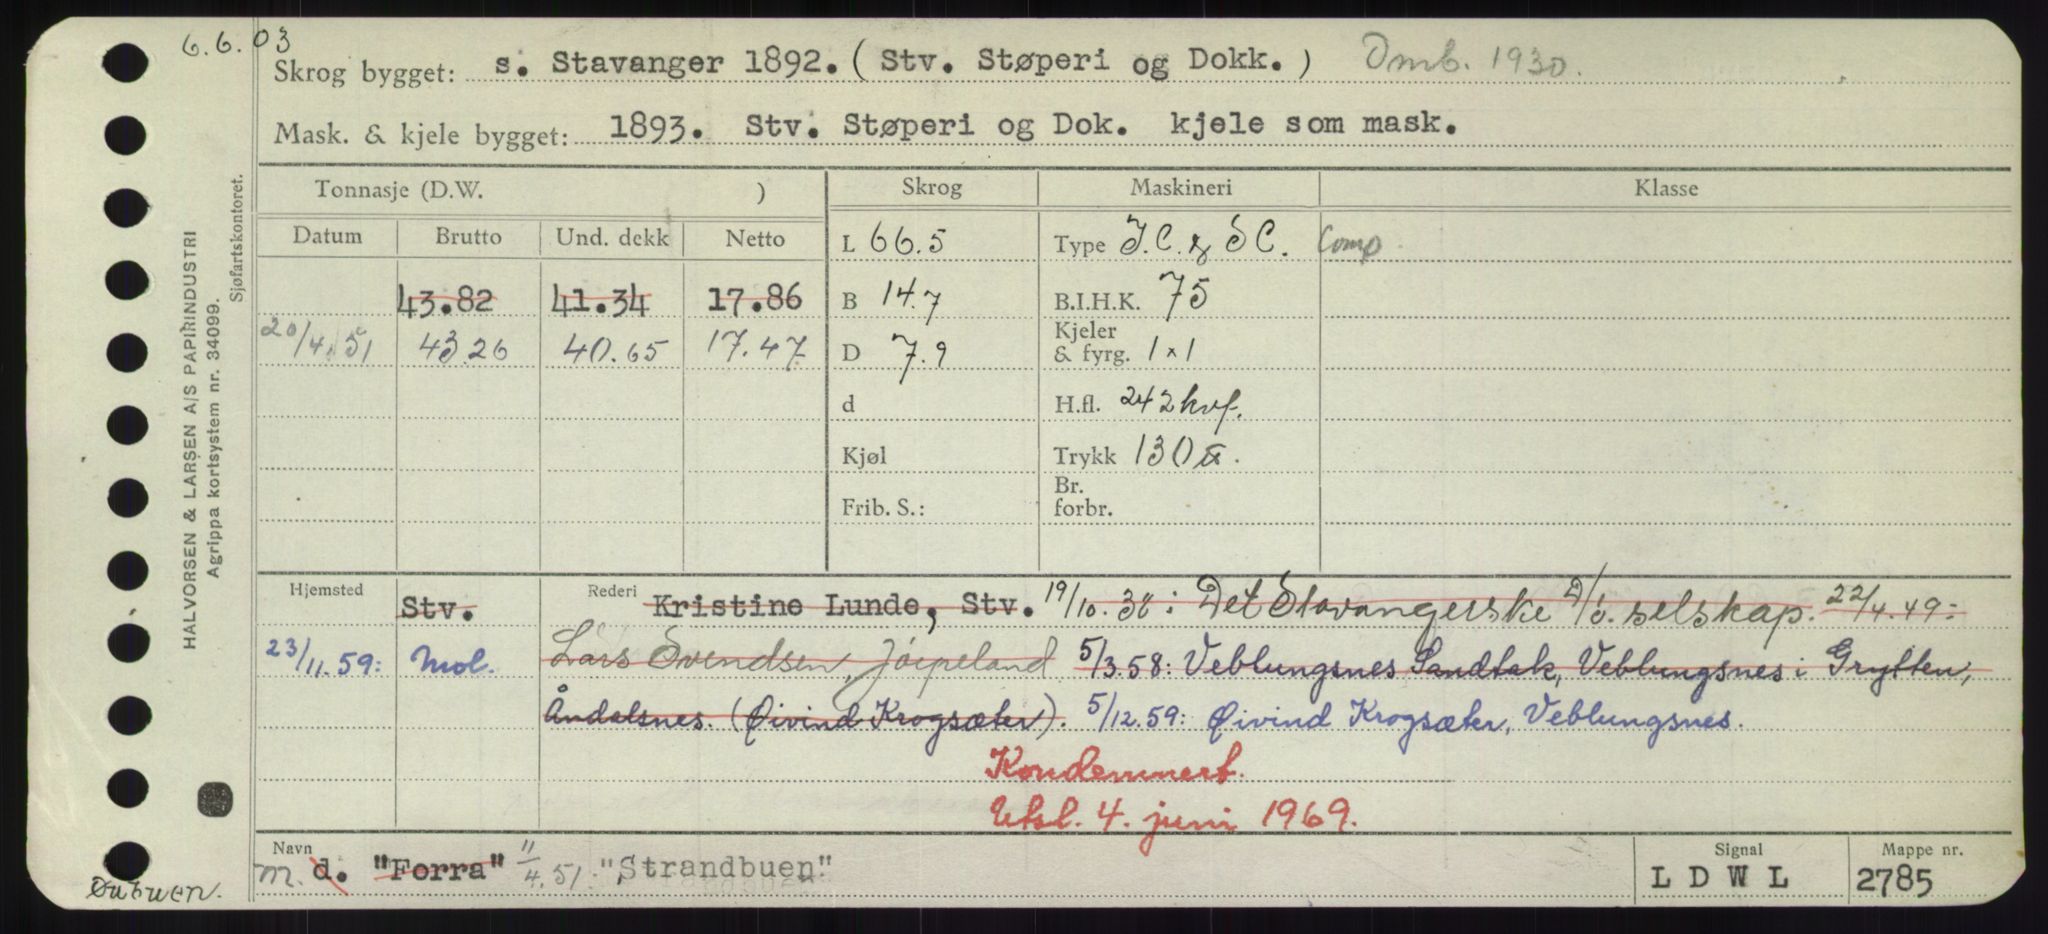 6.6.03
Skrog bygget: s. Stavanger 1892. (Stv. Støperi og Dokk.) Omb. 1930.
Mask. & kjele bygget: 1893. Stv. Støperi og Dok. kjele som mask.
Tonnasje (D.W. ) Skrog Maskineri Klasse
Datum Brutto Und. dekk Netto L 66.5 Type J.C. & SC. Comp
43.82 41.34 17.86 B 14.7 B.I.H.K. 75
20/4.51 43.26 40.65 17.47 D 7.9 Kjeler & fyrg. 1x1
d H.fl. 242 kvf.
Kjøl Trykk 130
Frib. S.: Br. forbr.
Hjemsted Stv. Rederi Kristine Lunde, Stv. 19/10.30: Det Stavangerske D/S. selskap. 22/4.49:
23/11.59: Mol. Lars Svendsen, Jørpeland 5/3.58: Veblungsnes Sandtak, Veblungsnes i Grytten,
Åndalsnes. (Øivind Krogsæter). 5/12.59: Øivind Krogsæter, Veblungsnes.
Kondemnert.
Utsl. 4. juni 1969.
Navn m. d. "Forra" 11/4.51. "Strandbuen" Signal LDWL Mappe nr. 2785
HALVORSEN & LARSEN A/S PAPIRINDUSTRI
Agrippa kortsystem nr. 34099.
Sjøfartskontoret.